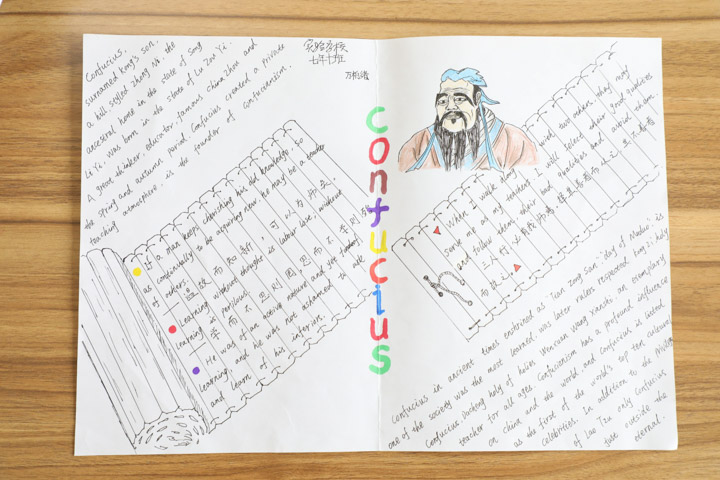 Confucius.
surnamed Kong's son,
a hill styled Zhong is the
ancestral home in the state of Song
Li Yi. was born in the state of Lu Zou Yi.
A great thinker, educator, famous China. Zhou and
the spring and autumn period. Confucius created a private
teaching atmosphere, is the founder of Confucianism.
实验学校
七年十班
Confucius
If a man keeps cherishing his old knowledge, so
as continually to be acquiring new, he may be a teacher
of others.
温故而知新，可以为师矣。
Learning without thought is labour lost, without
learning is perilous.
学而不思则罔，思而不学则殆
He was of an active nature and yet fond of
learning, and he was not ashamed to ask
and learn of his inferiors.
When I walk along with two others, they may
serve me as my teachers. I will select their good qualities
and follow them, their bad qualities and avoid them.
三人行，必有我师焉，择其善者而从之，其不善者
而改之。
Confucius in ancient times enshrined as "Tian Zong San", "day of Muduo" is
one of the society was the most learned. was later rulers respected Kongzi holy
Confucius, Dacheng holy of holies Wenxuan Wang Xianshi, an exemplary
teacher for all ages. Confucianism has a profound influence
on China and the world, and Confucius is listed
as the first of the world's top ten culture
celebrities. In addition to the
of Lao Tzu only Confucius
just outside the
eternal.